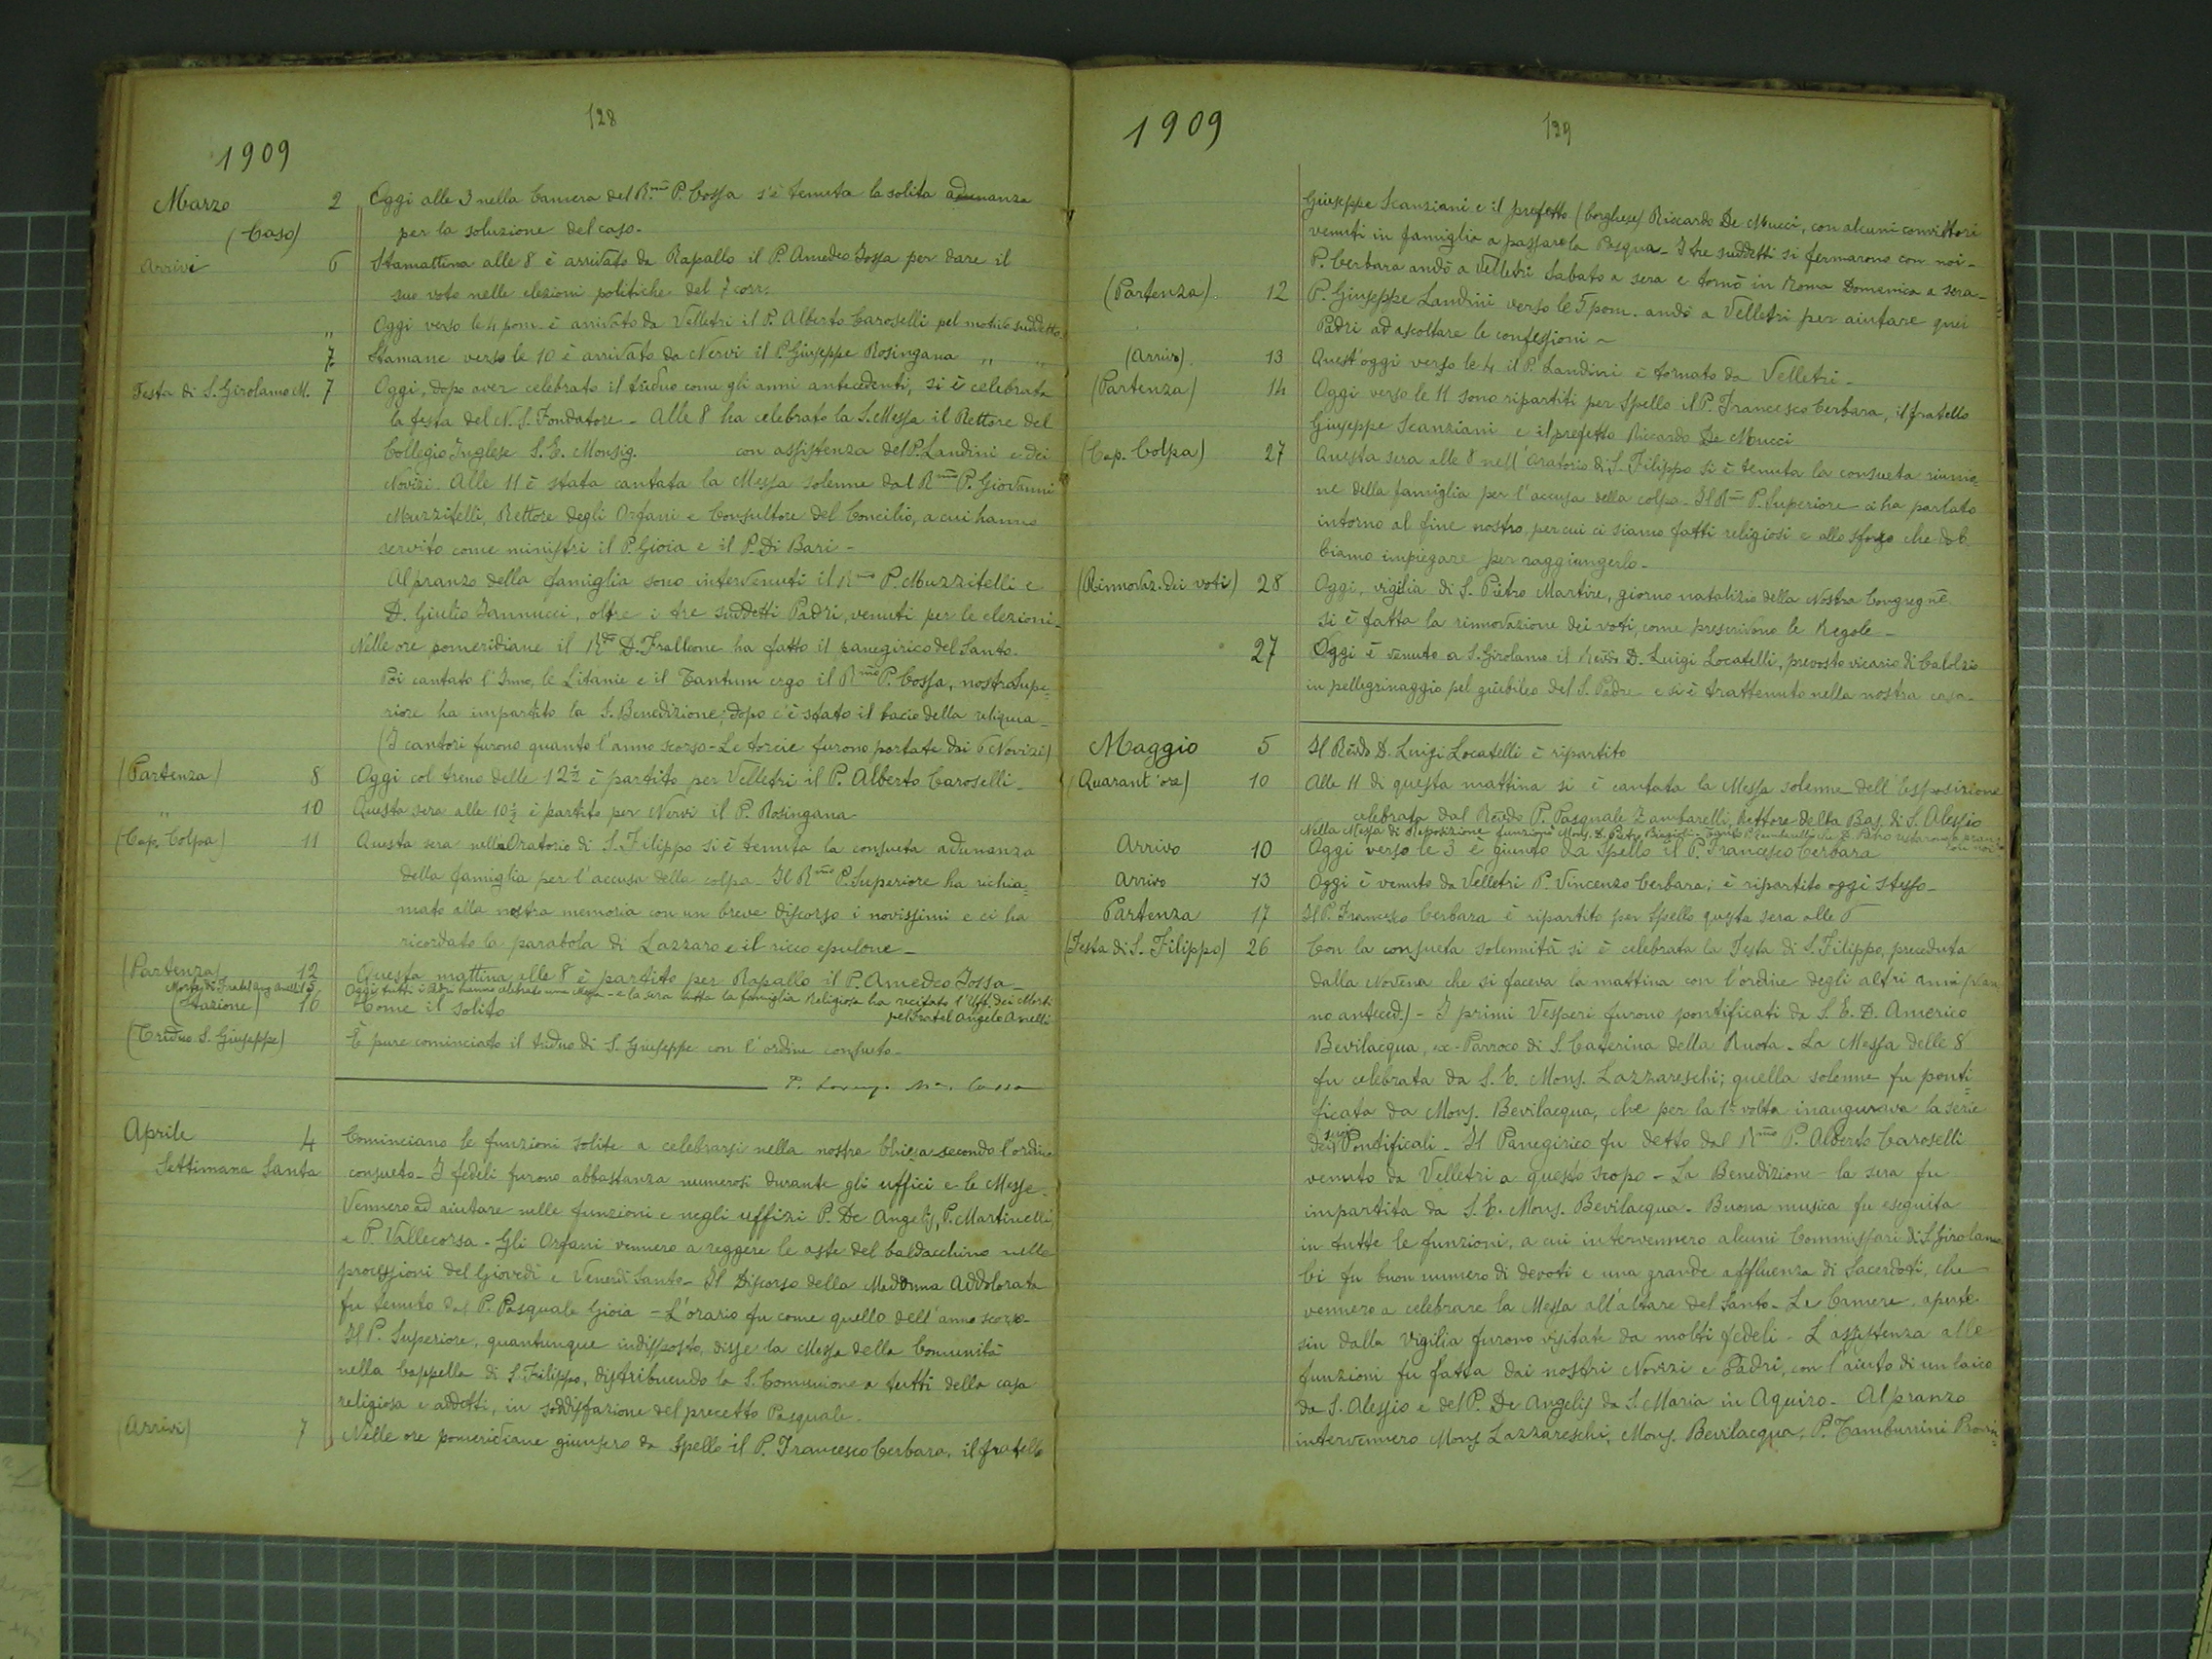 128
1909
Marzo 2 Oggi alle 3 nella Camera del R.mo P. Cossa s'è tenuta la solita adunanza
(Caso) per la soluzione del caso.
Arrivi 6 Stamattina alle 8 è arrivato da Rapallo il P. Amedeo Jossa per dare il
suo voto nelle elezioni politiche del 7 corr.
„ Oggi verso le 4 pom. è arrivato da Velletri il P. Alberto Caroselli pel motivo suddetto.
7 Stamane verso le 10 è arrivato da Nervi il P. Giuseppe Rosingana „ „
Festa di S. Girolamo M. 7 Oggi, dopo aver celebrato il triduo come gli anni antecedenti, si è celebrata
la festa del N. S. Fondatore - Alle 8 ha celebrato la S. Messa il Rettore del
Collegio Inglese S. E. Monsig. con assistenza del P. Landini e dei
Novizi. Alle 11 è stata cantata la Messa solenne dal R.mo P. Giovanni
Muzzitelli, Rettore degli Orfani e Consultore del Concilio, a cui hanno
servito come ministri il P. Gioia e il P. Di Bari -
Al pranzo della famiglia sono intervenuti il R.mo P. Muzzitelli e
D. Giulio Iannucci, oltre i tre suddetti Padri, venuti per le elezioni -
Nelle ore pomeridiane il R.do D. Fralleone ha fatto il panegirico del Santo.
Poi cantato l'Inno, le Litanie e il Tantum ergo il R.mo P. Cossa, nostro Supe=
riore ha impartito la S. Benedizione; dopo c'è stato il bacio della reliquia -
(I cantori furono quanto l'anno scorso - Le torcie furono portate dai 6 Novizi)
(Partenza) 8 Oggi col treno delle 12 ½ è partito per Velletri il P. Alberto Caroselli -
„ 10 Questa sera alle 10 ½ è partito per Nervi il P. Rosingana
(Cap. Colpa) 11 Questa sera nell'Oratorio di S. Filippo si è tenuta la consueta adunanza
della famiglia per l'accusa della colpa - Il R.mo P. Superiore ha richia=
mato alla nostra memoria con un breve discorso i novissimi e ci ha
ricordato la parabola di Lazzaro e il ricco epulone -
(Partenza) 12 Questa mattina alle 8 è partito per Rapallo il P. Amedeo Jossa -
Morte di Fratel Ang. Anelli 15 Oggi tutti i Padri hanno celebrato una Messa - e la sera tutta la famiglia Religiosa ha recitato l'Uff. dei Morti
pel Fratel Angelo Anelli
(Stazione) 16 Come il solito
(Triduo S. Giuseppe) È pure cominciato il triduo di S. Giuseppe con l'ordine consueto -
P. Lorenzo M.a Cossa
Aprile 4 Cominciano le funzioni solite a celebrarsi nella nostra Chiesa secondo l'ordine
Settimana Santa consueto - I fedeli furono abbastanza numerosi durante gli uffici e le Messe.
Vennero ad aiutare nelle funzioni e negli uffizi P. De Angelis, P. Martinelli
e P. Vallecorsa - Gli Orfani vennero a reggere le aste del baldacchino nelle
processioni del Giovedì e Venerdì Santo - Il Discorso della Madonna Addolorata
fu tenuto dal P. Pasquale Gioia - L'orario fu come quello dell'anno scorso -
Il P. Superiore, quantunque indisposto, disse la Messa della Comunità
nella Cappella di S. Filippo, distribuendo la S. Comunione a tutti della casa
religiosa e addetti, in soddisfazione del precetto Pasquale.
(Arrivi) 7 Nelle ore pomeridiane giunsero da Spello il P. Francesco Cerbara, il fratello
1909
129
Giuseppe Scanziani e il prefetto (borghese) Riccardo De Mucci, con alcuni convittori
venuti in famiglia a passare la Pasqua - I tre suddetti si fermarono con noi -
P. Cerbara andò a Velletri Sabato a sera e tornò in Roma Domenica a sera -
(Partenza) 12 P. Giuseppe Landini verso le 5 pom. andò a Velletri per aiutare quei
Padri ad ascoltare le confessioni ~
(Arrivo) 13 Quest'oggi verso le 4 il P. Landini è tornato da Velletri -
(Partenza) 14 Oggi verso le 11 sono ripartiti per Spello il P. Francesco Cerbara, il fratello
Giuseppe Scanziani e il prefetto Riccardo De Mucci
(Cap. Colpa) 27 Questa sera alle 8 nell'oratorio di S. Filippo si è tenuta la consueta riunio=
ne della famiglia per l'accusa della colpa - Il R.mo P. Superiore ci ha parlato
intorno al fine nostro, per cui ci siamo fatti religiosi e allo sforzo che dob=
biamo impiegare per raggiungerlo -
(Rinnovaz. dei voti) 28 Oggi, vigilia di S. Pietro Martire, giorno natalizio della Nostra Congregne
si è fatta la rinnovazione dei voti, come prescrivono le Regole -
27 Oggi è venuto a S. Girolamo il Revdo D. Luigi Locatelli, prevosto vicario di Calolzio
in pellegrinaggio pel giubileo del S. Padre e si è trattenuto nella nostra casa -
Maggio 5 Il Revdo D. Luigi Locatelli è ripartito
(Quarant'ore) 10 Alle 11 di questa mattina si è cantata la Messa solenne dell'Esposizione
celebrata dal Revdo P. Pasquale Zambarelli, Rettore della Bas. di S. Alessio
Nella Messa di Reposizione funzionò Mons. D. Pietro Biagioli restarono a pranzo
con noi
Arrivo 10 Oggi verso le 3 è giunto da Spello il P. Francesco Cerbara
Arrivo 13 Oggi è venuto da Velletri P. Vincenzo Cerbara; è ripartito oggi stesso -
Partenza 17 Il P. Francesco Cerbara è ripartito per Spello questa sera alle 6
(Festa di S. Filippo) 26 Con la consueta solennità si è celebrata la Festa di S. Filippo, preceduta
dalla Novena che si faceva la mattina con l'ordine degli altri anni
no anteced.) - I primi Vesperi furono pontificati da S. E. D. Americo
Bevilacqua, ex-Parroco di S. Caterina della Ruota - La Messa delle 8
fu celebrata da S. E. Mons. Lazzareschi; quella solenne fu ponti=
ficata da Mons. Bevilacqua, che per la 1a volta inaugurava la serie
dei suoi Pontificali - Il Panegirico fu detto dal R.mo P. Alberto Caroselli
venuto da Velletri a questo scopo - La Benedizione la sera fu
impartita da S. E. Mons. Bevilacqua - Buona musica fu eseguita
in tutte le funzioni, a cui intervennero alcuni Commissari di S. Girolamo
Ci fu buon numero di devoti e una grande affluenza di Sacerdoti, che
vennero a celebrare la Messa all'altare del Santo - Le Camere, aperte
sin dalla vigilia furono visitate da molti fedeli - L'assistenza alle
funzioni fu fatta dai nostri Novizi e Padri, con l'aiuto di un laico
da S. Alessio e del P. De Angelis da S. Maria in Aquiro - Al pranzo
intervennero Mons. Lazzareschi, Mons. Bevilacqua, P. Tamburrini Provin=